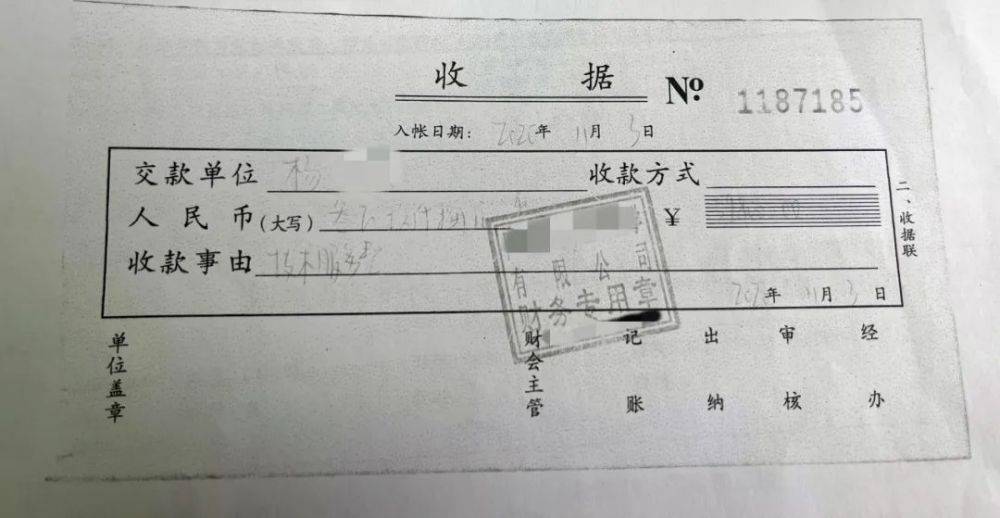 收 据 № 1187185
入帐日期: 2020年 11月 3日
交款单位 杨 收款方式
人 民 币(大写) ¥
收款事由 技术服务费
2020年 11月 3日
二、收据联
有限公司
财务专用章
单位盖章 财会主管 记账 出纳 审核 经办